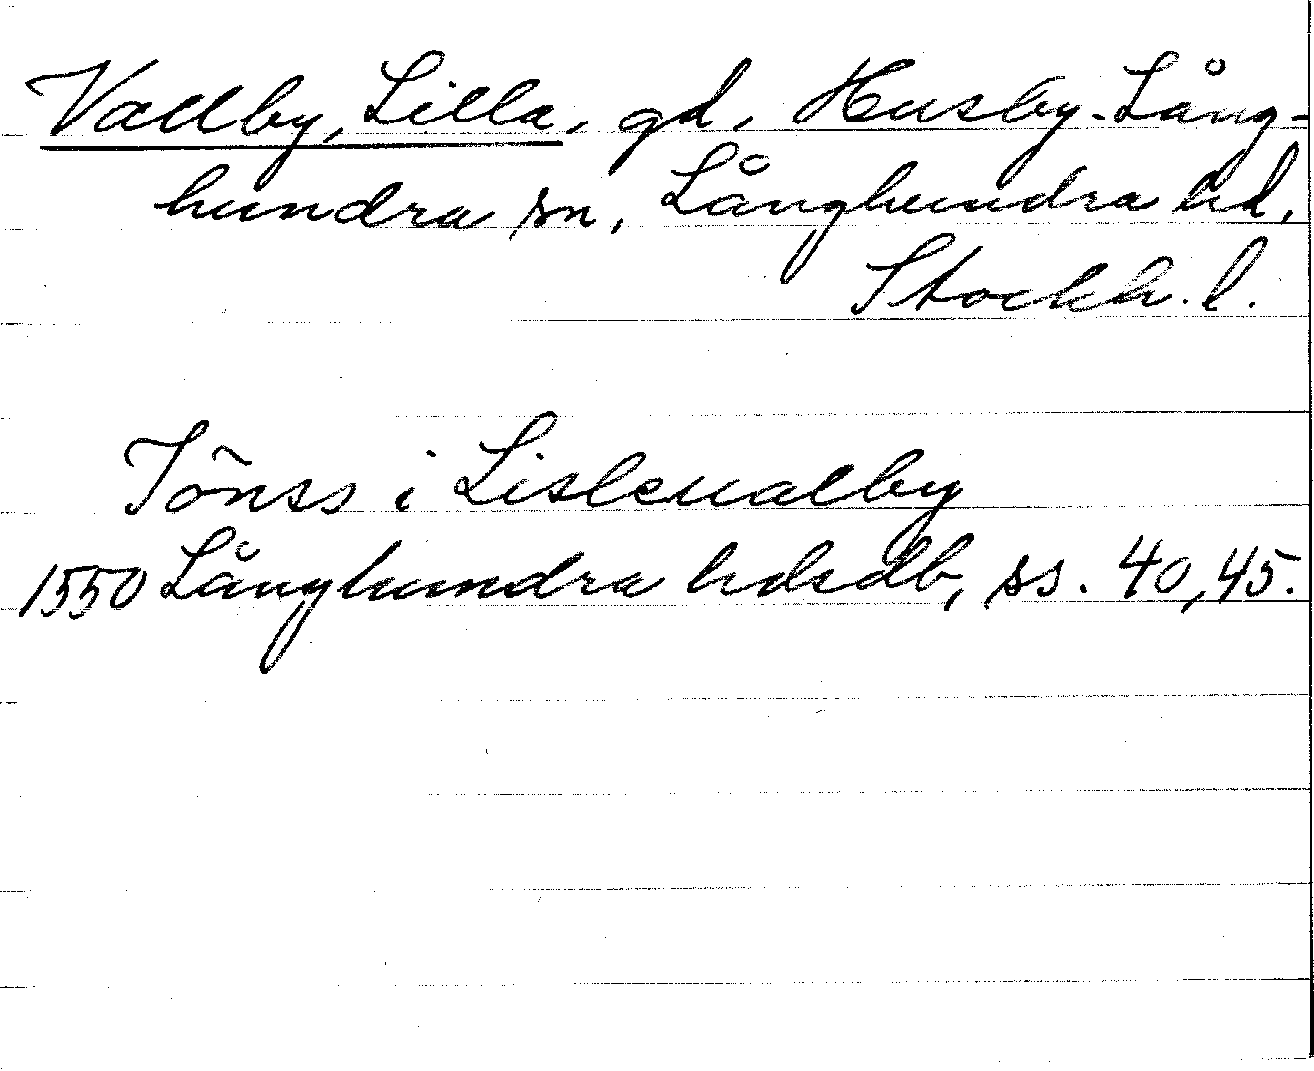 Vallby, Lilla, gd, Husby-Lång-
hundra sn, Långhundra hd,
Stockh. l.
Jönss i Lisleualby
1550 Långhundra hdsdb, ss. 40, 45.